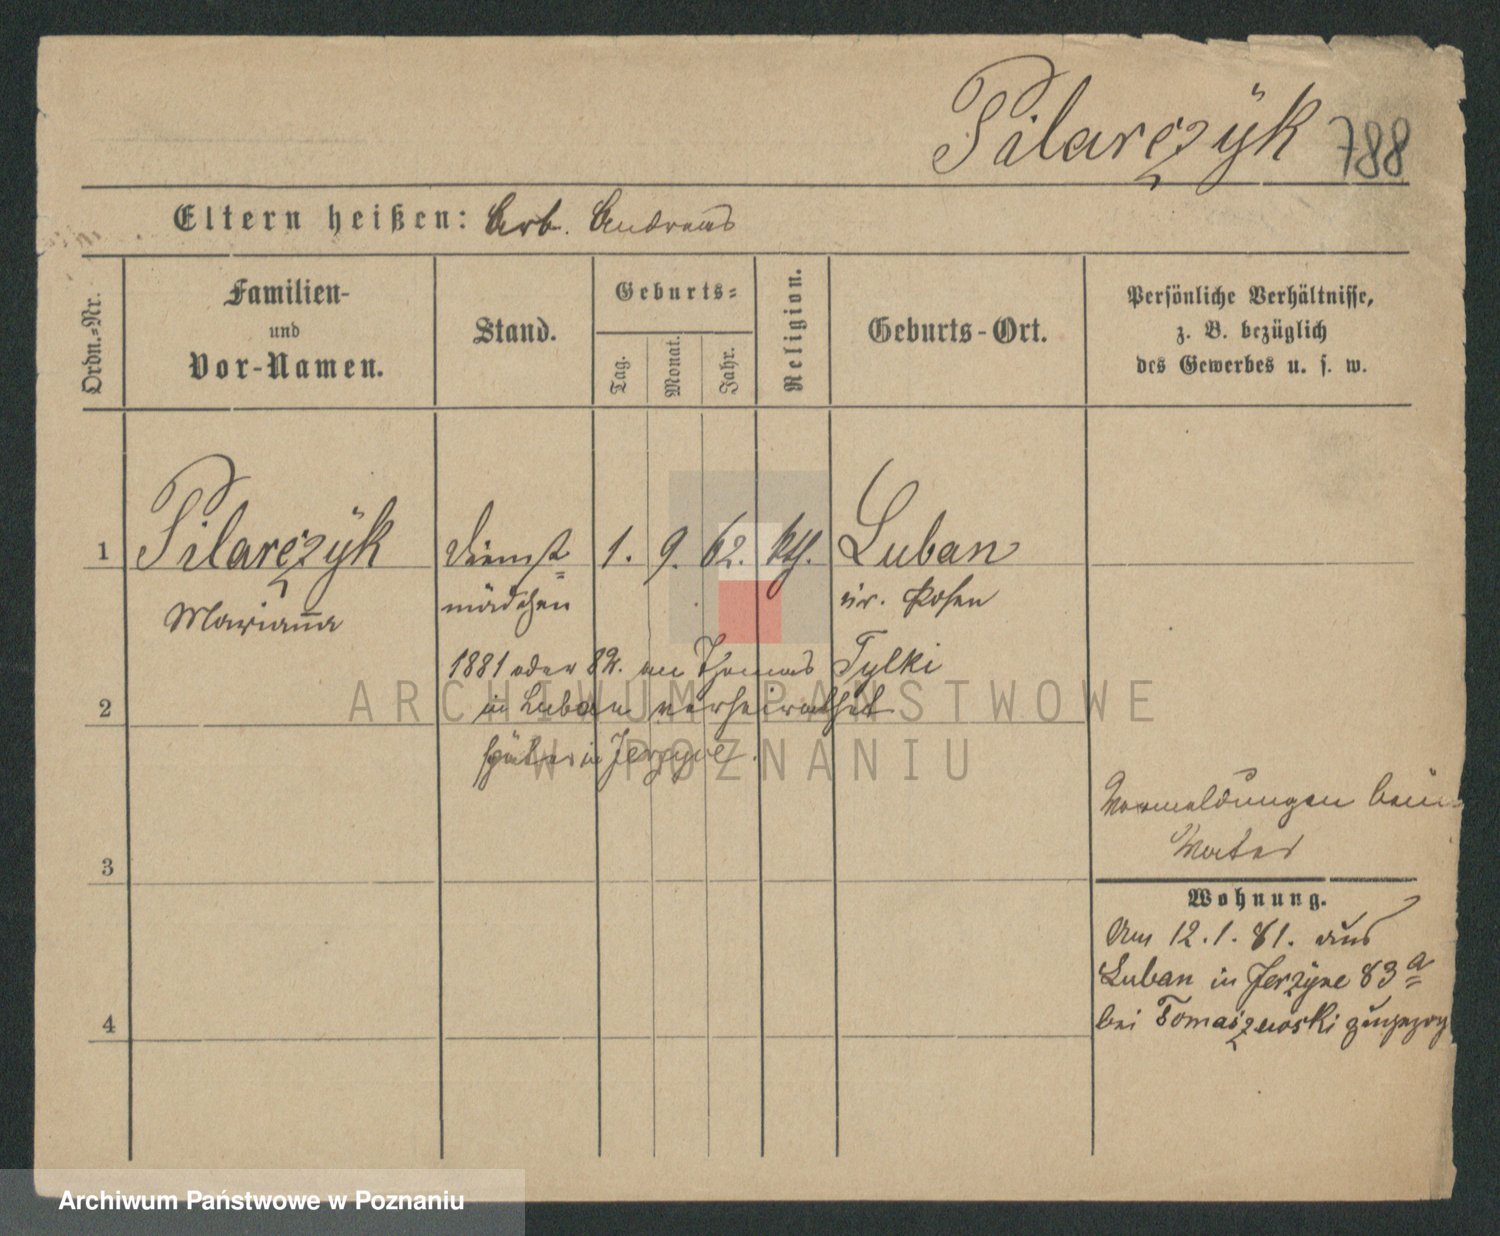 Pilarczÿk 788
Eltern heißen: Arb. Andreas
Ordn.-Nr.
Familien-
und
Vor-Namen.
Stand.
Geburts-
Tag.
Monat.
Jahr.
Religion.
Geburts-Ort.
Persönliche Verhältnisse,
z. B. bezüglich
des Gewerbes u. s. w.
1 Pilarczÿk Dienst= 1. 9. 62. kth. Luban
Marianna mädchen Kr. Posen
1881 oder 82. an Thomas Tylki
2 in Luban verheirathet
später in Jerzyce.
ARCHIWUM PAŃSTWOWE
W POZNANIU
Anmeldungen beim
Vater
3
Wohnung.
Am 12. 1. 81. aus
Luban in Jerzyce 83 a
bei Tomaszewski zugezog
4
Archiwum Państwowe w Poznaniu